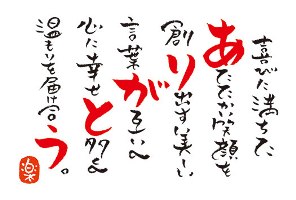 喜びに満ちた
あたたか笑顔を
創り出す美しい
言葉がを互いへ
心に幸せと多くへ
温もりを届け合う。
楽